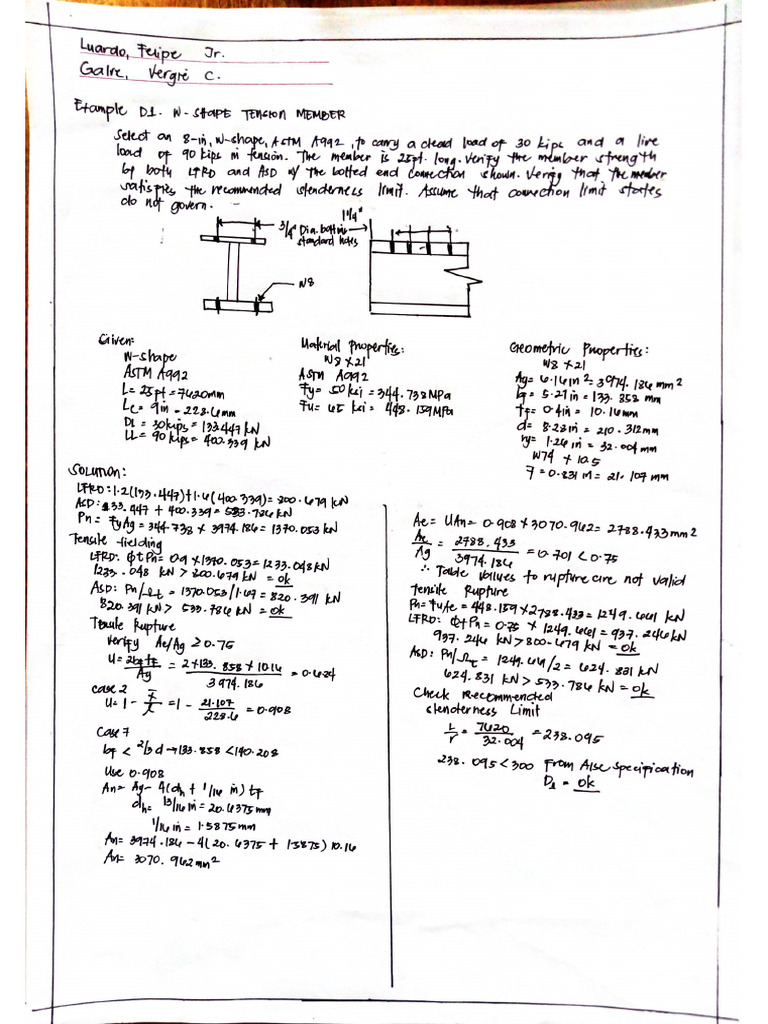 Luardo, Felipe Jr.
Galve, Vergie C.
Example D1. W-SHAPE TENSION MEMBER
Select an 8-in, W-shape, ASTM A992, to carry a dead load of 30 kips and a live
load of 90 kips in tension. The member is 25ft. long. Verify the member strength
by both LFRD and ASD w/ the bolted end connection shown. Verify that the member
satisfies the recommended slenderness limit. Assume that connection limit states
do not govern.
1 1/4"
3/4" Dia. bolt in
standard holes
W8
Given:
W-shape
ASTM A992
L = 25ft = 7620mm
Lc = 9in - 228.6mm
DL = 30kips = 133.447kN
LL = 90 kips = 400.339 kN
Material Properties:
W8 x 21
ASTM A992
Fy = 50 ksi = 344.738MPa
Fu = 65 ksi = 448.159MPa
Geometric Properties:
W8 x 21
Ag = 6.16 in² = 3974.186 mm²
bf = 5.27 in = 133.858 mm
tf = 0.4in = 10.16mm
d = 8.28 in = 210.312mm
ry = 1.26 in = 32.004 mm
W74 x 10.5
ȳ = 0.831 in = 21.107 mm
SOLUTION:
LFRD: 1.2(133.447) + 1.6(400.339) = 800.679 kN
ASD: 133.447 + 400.339 = 533.786 kN
Pn = FyAg = 344.738 x 3974.186 = 1370.053 kN
Tensile Yielding
LFRD: ϕt Pn = 0.9 x 1370.053 = 1233.048kN
1233.048 kN > 800.679 kN = ok
ASD: Pn/Ωt = 1370.053/1.67 = 820.391 kN
820.391 kN > 533.786 kN = ok
Tensile Rupture
Verify Ae/Ag ≥ 0.75
U = 2bftf/Ag = 2 x 133.858 x 10.16/3974.186 = 0.684
case 2
U = 1 - x̄/l = 1 - 21.107/228.6 = 0.908
Case 7
bf < 2/3 d → 133.858 < 140.208
Use 0.908
An = Ag - 4(dh + 1/16 in) tf
dh = 13/16 in = 20.6375mm
1/16 in = 1.5875mm
An = 3974.186 - 4(20.6375 + 1.5875) 10.16
An = 3070.962mm²
Ae = UAn = 0.908 x 3070.962 = 2788.433mm²
Ae/Ag = 2788.433/3974.186 = 0.701 < 0.75
∴ Table values to rupture are not valid
Tensile Rupture
Pn = FuAe = 448.159 x 2788.433 = 1249.661 kN
LFRD: ϕt Pn = 0.75 x 1249.661 = 937.246kN
937.246 kN > 800-679 kN = ok
ASD: Pn/Ωt = 1249.661/2 = 624.831 kN
624.831 kN > 533.786 kN = ok
Check Recommended
Slenderness Limit
L/r = 7620/32.004 = 238.095
238.095 < 300 From AISC specification
D1 = ok